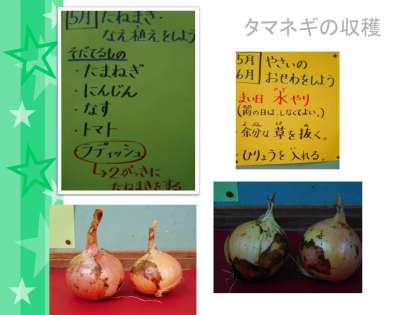 タマネギの収穫
5月 たねまき・
なえ植えをしよう
そだてるもの
・たまねぎ
・にんじん
・なす
・トマト
ラディッシュ
↳2がっきに
たねまきをする
5月
6月
やさいの
おせわをしよう
まい日 水やり
(雨の日は、しなくてよい。)
余分な草を抜く。
ひりょうを入れる。